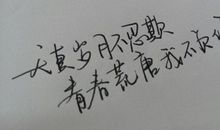 天真岁月不忍欺
青春荒唐我不负